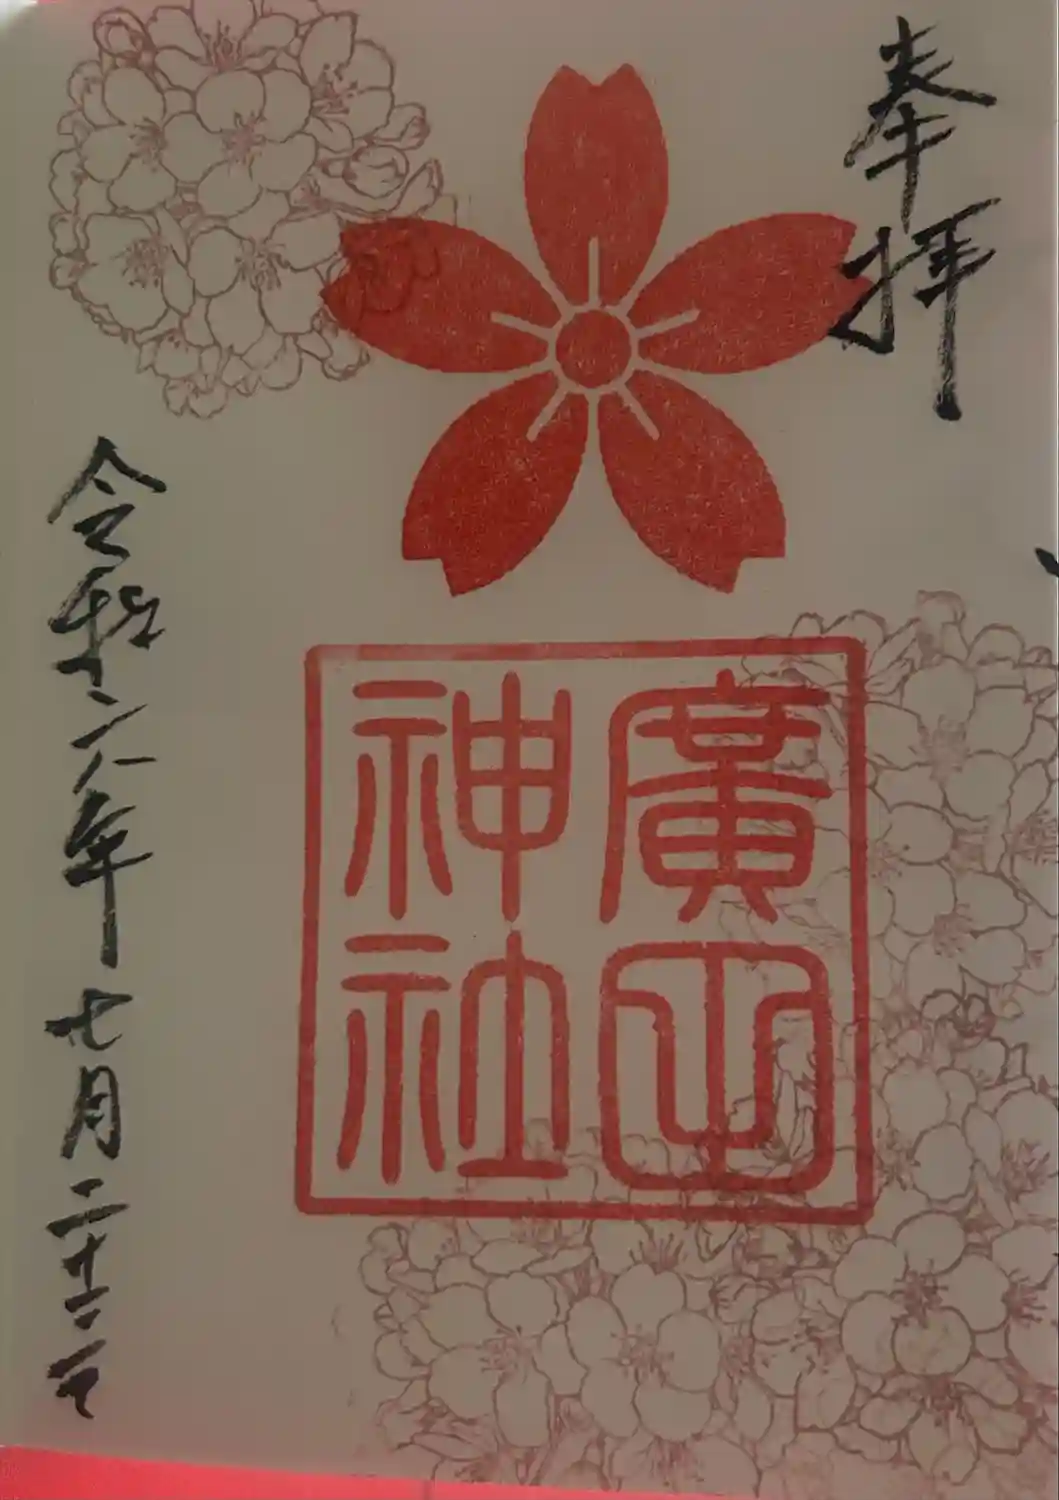 奉拝
廣田
神社
令和六年七月二十